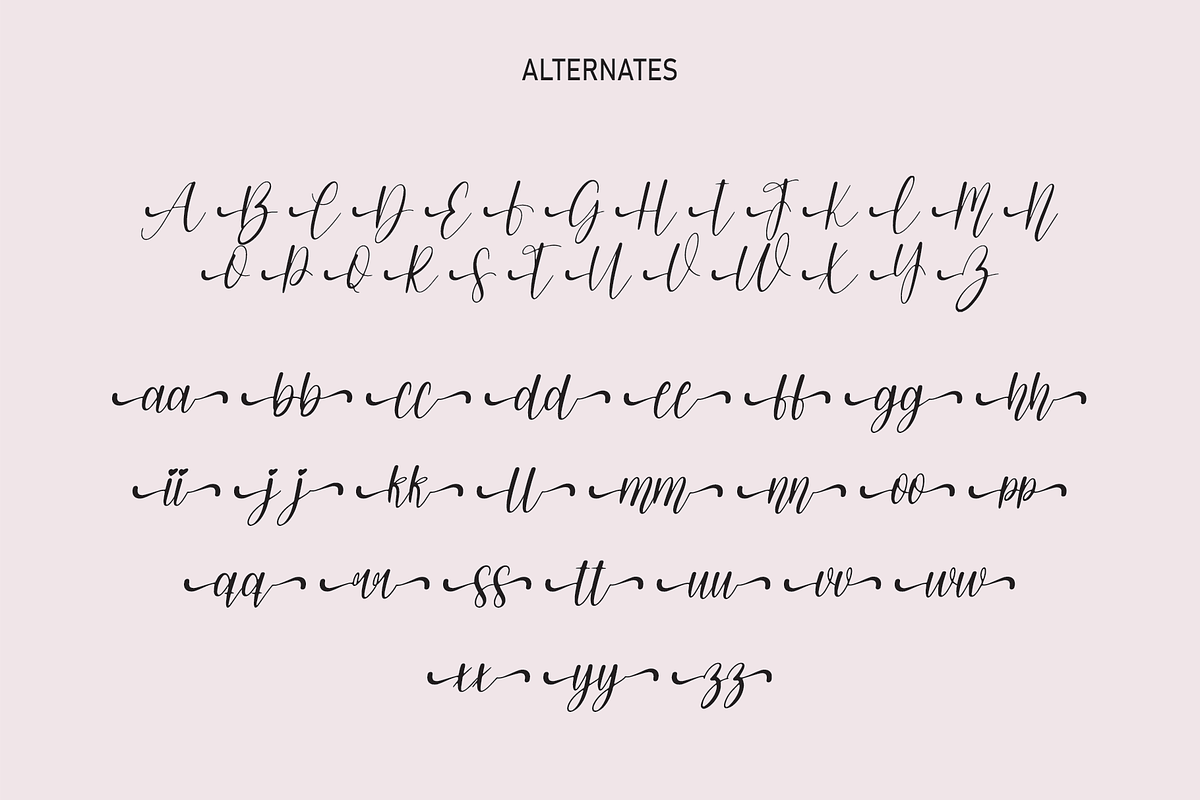 ALTERNATES
A B C D E F G H I J K L M N
O P Q R S T U V W X Y Z
aa bb cc dd ee ff gg hh
ii jj kk ll mm nn oo pp
qq rr ss tt uu vv ww
xx yy zz